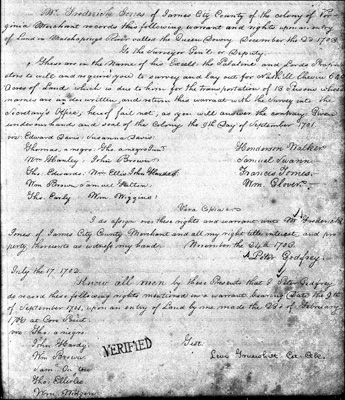 Mr. Frederick Jones of James City County of the colony of Virginia
Merchant records this following warrant and rights upon an entry
of Land in Matchapungo River called the Queen December the 22d 1703
To the Surveyor Genl. or Deputy.
These are in the Name of his Excell: the Palatine and Lords Proprietors
to will and require you to survey and lay out for
Acres of Land which is due to him for the transportation of 13 Persons whose
names are underwritten, and return this warrant with the Survey into the
Secretary's Office, hereof fail not, as you will answer the contrary. Given
under our hands and seal of the Colony the 9th Day of September 1701
viz: Edward Davis, Susanna Davis
Thomas, a negro; The a negro Henderson Walker
Wm Hanley John Brown Samuel Swann
Tho: Edwards, Wm Ellis John Francis Tomes
Wm Brown Samuel Wm. Glover
Tho: Early Wm Wiggins
Vera Copia
I do assign over this rights and warrant unto Mr Frederick
Jones of James City County Merchant and all my right title interest, and property
thereunto as witness my hand. November the 24th 1703
Peter Godfrey
July the 17. 1702.
Know all men by these Presents that I Peter Godfrey
do record these following rights mentioned in a warrant bearing Date the 9th
of September 1701, upon an entry of Land by me made the 23d of February
at Core Point
viz: Tho: a negro
John Hardy
Wm Brown
Sam
Tho: Ellis
Wm:
VERIFIED
Test
Cle.